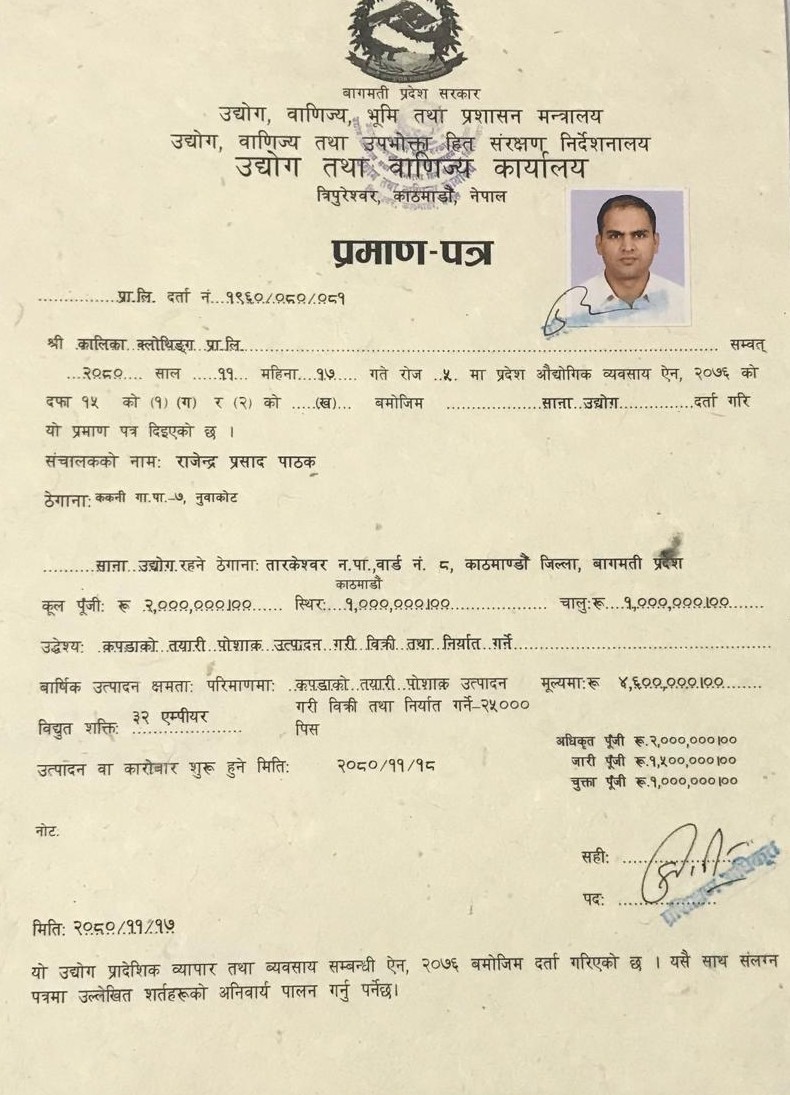 बागमती प्रदेश सरकार
उद्योग, वाणिज्य, भूमि तथा प्रशासन मन्त्रालय
उद्योग, वाणिज्य तथा उपभोक्ता हित संरक्षण निर्देशनालय
उद्योग तथा वाणिज्य कार्यालय
त्रिपुरेश्वर, काठमाडौं, नेपाल
प्रमाण-पत्र
..............प्रा.लि. दर्ता नं...१९६०/०८०/०८१
श्री कालिका क्लोथिङ्ग प्रा.लि............ सम्वत्
...२०८०.... साल .....११... महिना...१७..... गते रोज ..५. मा प्रदेश औद्योगिक व्यवसाय ऐन, २०७६ को
दफा १५ को (१) (ग) र (२) को .....(ख)... बमोजिम ...................साना उद्योग..............दर्ता गरि
यो प्रमाण पत्र दिइएको छ ।
संचालकको नाम: राजेन्द्र प्रसाद पाठक
ठेगाना: ककनी गा.पा.-७, नुवाकोट
.........साना उद्योग.रहने ठेगाना: तारकेश्वर न.पा.,वार्ड नं. ८, काठमाण्डौं जिल्ला, बागमती प्रदेश
काठमाडौं
कूल पूँजी: रू २,०००,०००।००...... स्थिर:...१,०००,०००।००.................. चालु:रू....१,०००,०००।००.......
उद्धेश्य: कपडाको तयारी पोशाक उत्पादन गरी विक्री तथा निर्यात गर्ने..........
बार्षिक उत्पादन क्षमता: परिमाणमा: ..कपडाको तयारी पोशाक उत्पादन मूल्यमा:रू ४,६००,०००।००........
गरी विक्री तथा निर्यात गर्ने-२५०००
विद्युत शक्ति: ३२ एम्पीयर पिस
अधिकृत पूँजी रू.२,०००,०००।००
उत्पादन वा कारोबार शुरू हुने मिति: २०८०/११/१८ जारी पूँजी रू.१,५००,०००।००
चुक्ता पूँजी रू.१,०००,०००।००
नोट:
सही: ..................
पद: ..................
मिति: २०८०/११/१७
यो उद्योग प्रादेशिक व्यापार तथा ब्यवसाय सम्बन्धी ऐन, २०७६ बमोजिम दर्ता गरिएको छ । यसै साथ संलग्न
पत्रमा उल्लेखित शर्तहरूको अनिवार्य पालन गर्नु पर्नेछ।